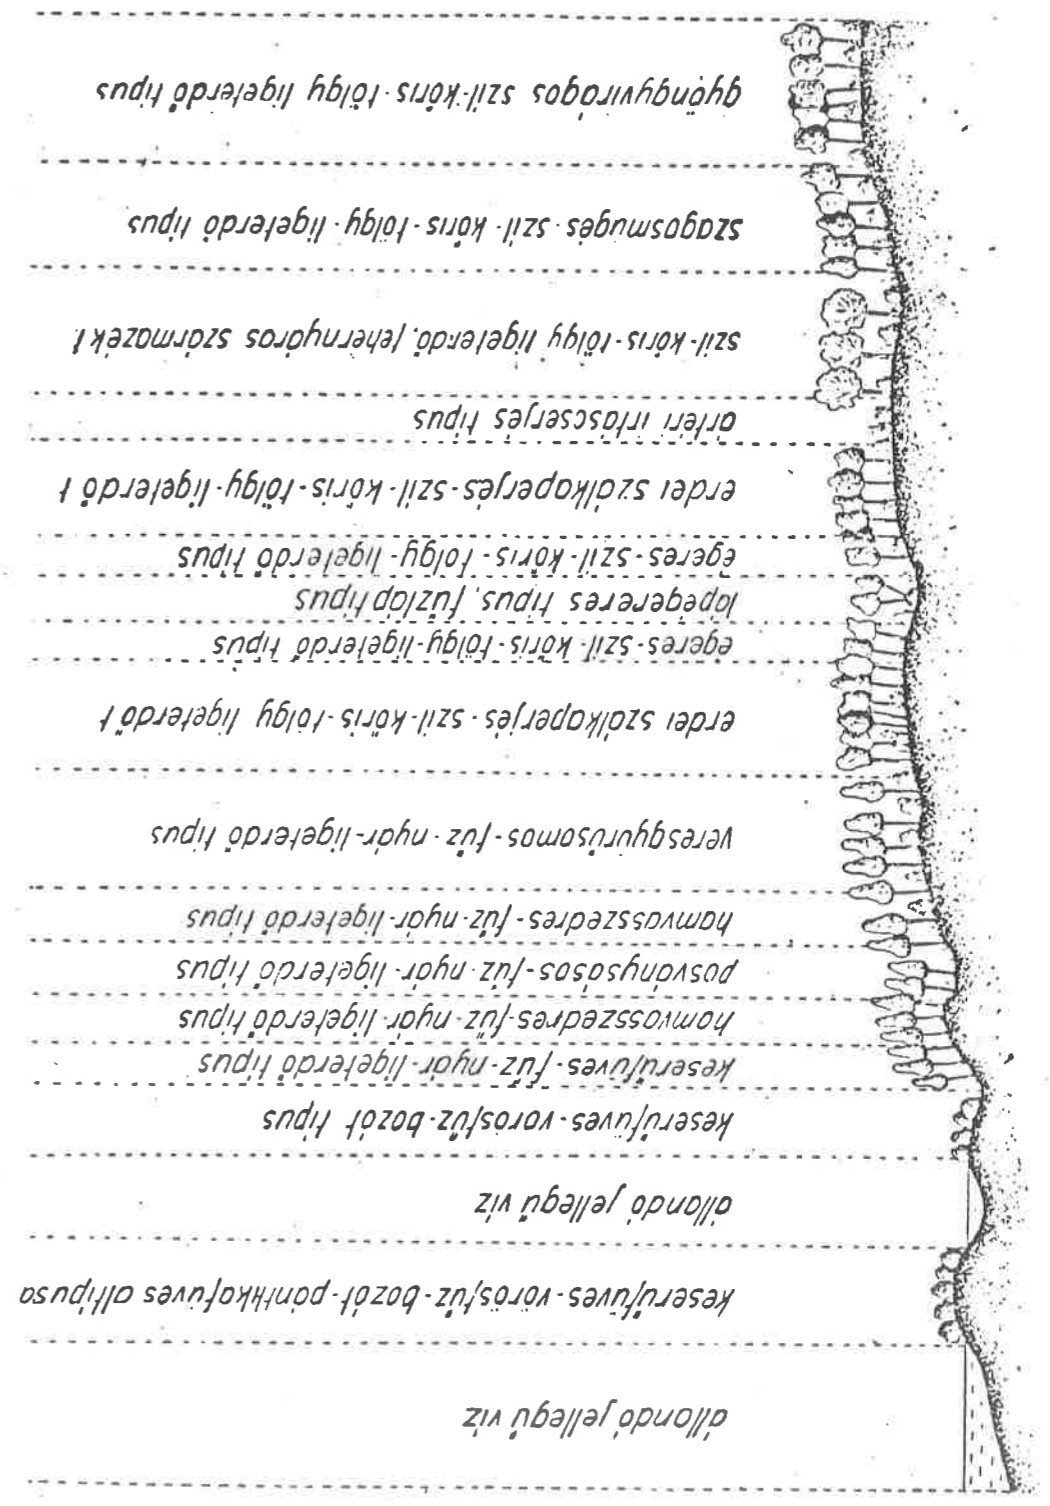 állandó jellegű víz
keserűfüves-vörösfűz-bozót-pántlikafüves altipusa
állandó jellegű víz
keserűfüves-vörösfűz-bozót tipus
keserűfüves-fűz-nyár-ligeterdő tipus
hamvasszedres-fűz-nyár-ligeterdő tipus
posványsásos-fűz-nyár-ligeterdő tipus
hamvasszedres-fűz-nyár-ligeterdő tipus
veresgyűrűsomos-fűz-nyár-ligeterdő tipus
erdei szálkaperjés-szil-kőris-tölgy ligeterdő t
égeres-szil-kőris-tölgy-ligeterdő tipus
lápégeres tipus, fűzláp tipus
égeres-szil-kőris-tölgy-ligeterdő tipus
erdei szálkaperjés-szil-kőris-tölgy-ligeterdő t
ártéri irtáscserjés tipus
szil-kőris-tölgy ligeterdő, fehérnyáras származék t.
szagosmüges-szil-kőris-tölgy-ligeterdő tipus
gyöngyvirágos szil-kőris-tölgy ligeterdő tipus